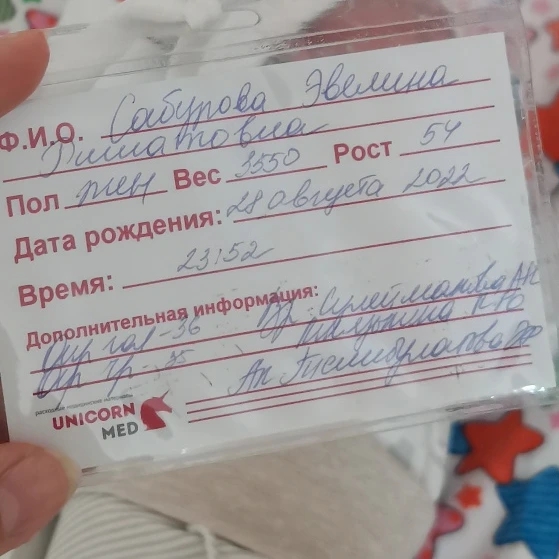 Ф.И.О. Сабурова Эвелина
Ринатовна
Пол жен Вес 3550 Рост 54
Дата рождения: 28 августа 2022
Время: 23:52
Дополнительная информация:
Окр гол-36 Вр. Сулейманова АН
Окр гр-35
Ак.
UNICORN
MED